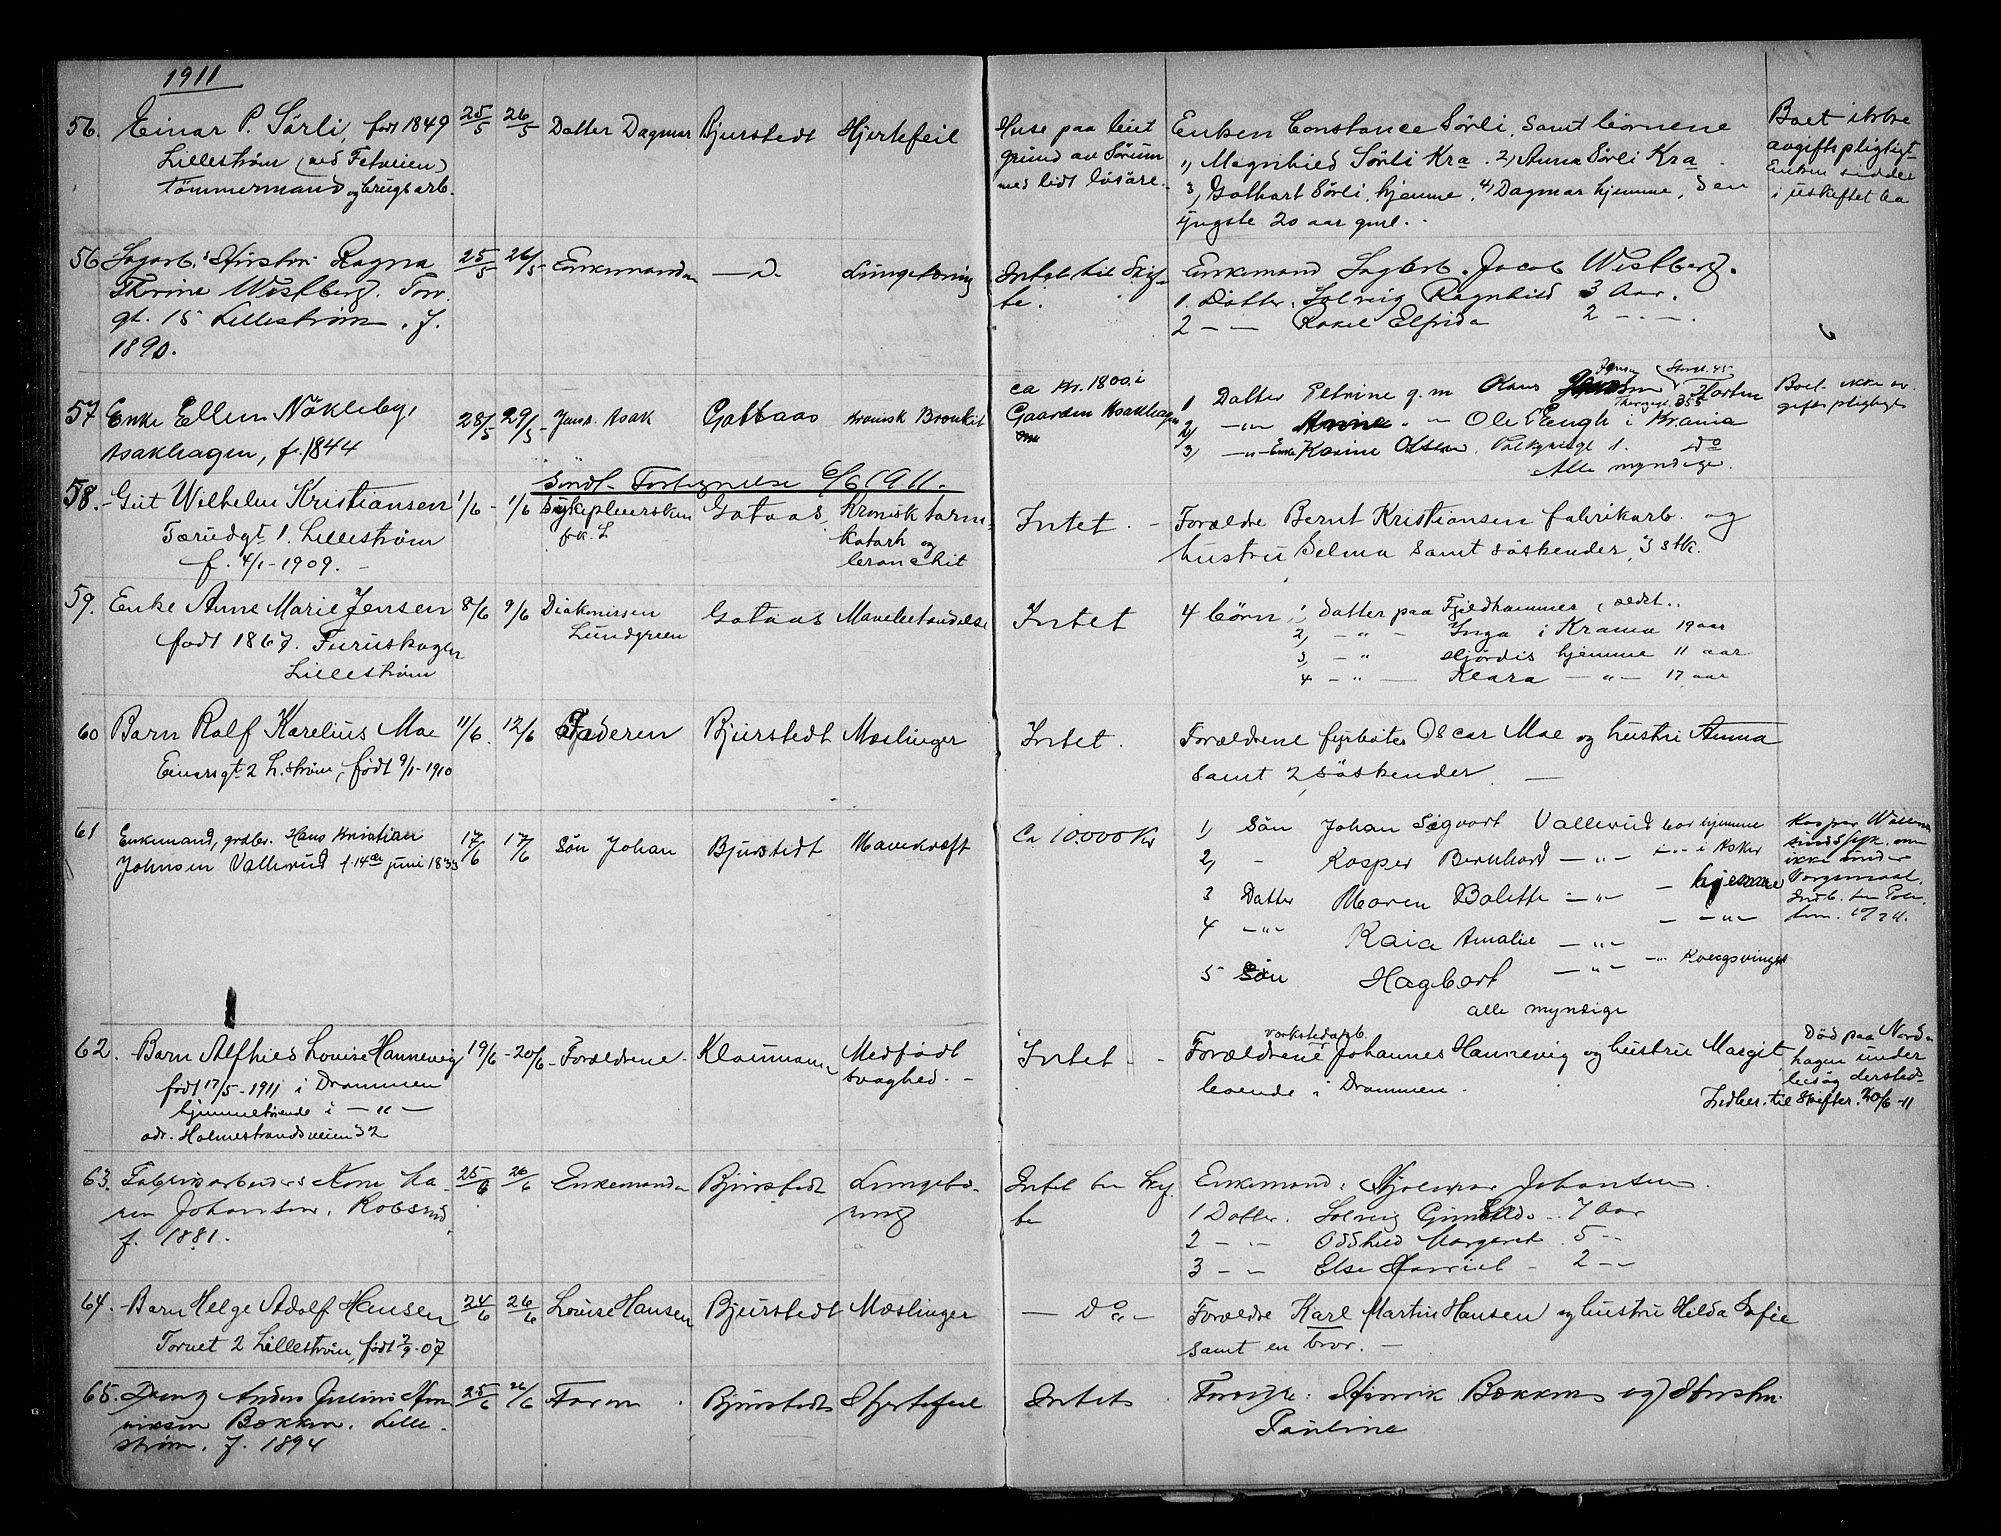 1911
56. Einar P. Sörli, født 1849
Lillestrøm (ved Fetveien)
Tömmermand og brugsarb.
25/5 26/5 Datter Dagmar Bjurstedt Hjertefeil
Huse paa leiet
grund av Sörum
med lidt lösöre.
Enken Constance Sörli, samt börnene
1, Magnhied Sörli Kra. 2, Anna Sörli Kra.
3, Gothart Sörli, hjemme, 4, Dagmar hjemme, den
yngste 20 aar gml.
Boet ikke
avgiftspligtigt
Enken sidder
i uskiftet bo
56 Sagarb.s Hustru Ragna
Thorine Westberg. Torv
gt. 15 Lillestrøm. f.
1890.
25/5 26/5 Enkemanden — D. Lungebetændelse
Intet til Skif
te.
Enkemand Sagarb. Jacob Westberg.
1. Datter. Solveig Ragnhild 3 Aar.
2 — — Rakel Elfrida 2 — — .
57 Enke Ellen Nökleby,
Asakhagen, f. 1844
28/5 29/5 Jens. Asak Gottaas Kronisk Bronkit
ca kr. 1800 i
Gaarden Asakhagen
1 Datter Petrine g. m Olaus Jensen Storgt. 45 Horten
2, —„— „— Ole Engh i Krania
3, —„— Enke Karine Olsen D°
Alle myndige.
Boet ikke av
gifts pligtigt
Sendt Fortegnelse 6/6 1911.
58. Gut Wilhelm Kristiansen
Tærudgt 1. Lillestrøm
f. 4/1-1909. —
1/6 - 1/6 Sykepleiersken
frk. L
Gotaas, Kronisk tarm-
katarh og
bronchit
Intet. —
Forældre Bernt Kristiansen fabrikarb. og
hustru Selma samt søskender, 3 stk.
59. Enke Anne Marie Jensen
født 1867. Furuskogen
Lillestrøm
8/6 9/6 Diakonissen
Lundgreen
Gotaas Mavebetændelse
Intet
4 börn, 1, Datter paa Fjeldhammer, ældst.
2, — „ — Inga i Krania 19 aar
3, — „ Hjördis hjemme 11 aar
4 — „ — Klara — „ — 17 aar
60 Barn Rolf Karelius Moe
Einarsgt 2 L.strøm, født 9/1-1910
11/6. 12/6 Faderen Bjurstedt Mæslinger
Intet.
Forældrene fyrbøter Oscar Moe og hustru Anna
samt 2 søskender —
61 Enkemand, grdbr. Hans Kristian
Johnsen Vallerud f. 14de juni 1833
17/6 17/6 Søn Johan Bjurstedt Mavekræft
Ca 10.000 Kr
1, Søn Johan Sigvart Vallerud bor hjemme
2, - Kasper Bernhard — „ — — „ — i Asker
3 Datter Maren Bolette — „ — — hjemme
4 —„— Kaia Amalie — „ — — „ —
5 Søn Hagbart — „ — —„ Kongsvinger
alle myndige
Kasper Valleruds
sindssyk. men
ikke under
Vergemaal.
62. Barn Alfhied Louise Hannevig
født 17/5-1911 i Drammen
hjemmehörende i — „ —
adr. Holmestrandsveien 32
19/6 - 20/6 - Forældrene - Klouman Medfødt
svaghed. —
Intet. —
verkstedarb.
Forældrene Johannes Hannevig og hustru Margit,
boende i Drammen.
Död paa Nord-
hagen under
besög dersteds-
Indber. til Skifter. 20/6-11
63. Fabrikarbeiders Kone Ka-
ren Johansen. Robsrud,
f. 1881.
25/6 26/6 Enkemanden Bjurstedt Lungebetænd-
Intet til Skif
te
Enkemand: Hjalmar Johansen.
1 Datter. Solveig Gunhild. — 7 Aar
2 — — Oddhild Margaret 5 —
3 — — Else Harriet — 2 — —
64. Barn Helge Adolf Hansen
Torvet 2 Lillestrøm, født 2/9-07
24/6 26/6 Louise Hansen Bjurstedt Mæslinger
— D° „ —
Forældre Karl Martin Hansen og hustru Hilda Sofie
samt en bror. —
65. Dreng Anders Julius Hen
riksen Bækken. Lille-
strøm. f. 1894
25/6 26/6 Faren. Bjurstedt Hjertefeil
Intet
Forældre: Henrik Bækken og Hustru
Pauline